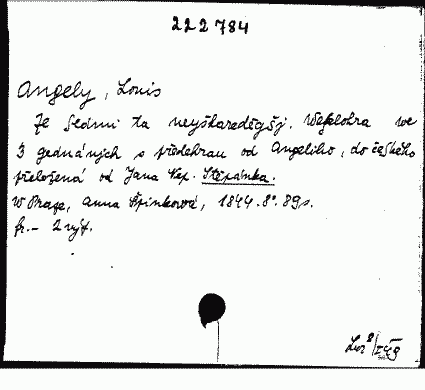 222784
Angely, Louis
Ze sedmi ta neyškareděgšj. Weselohra we
3 gednánjch s předehrau od Angeliho, do českého
přeložená od Jana Nep. Štěpánka.
W Praze, Anna Špinkowá, 1844. 8°. 89 s.
fr. – 2 výt.